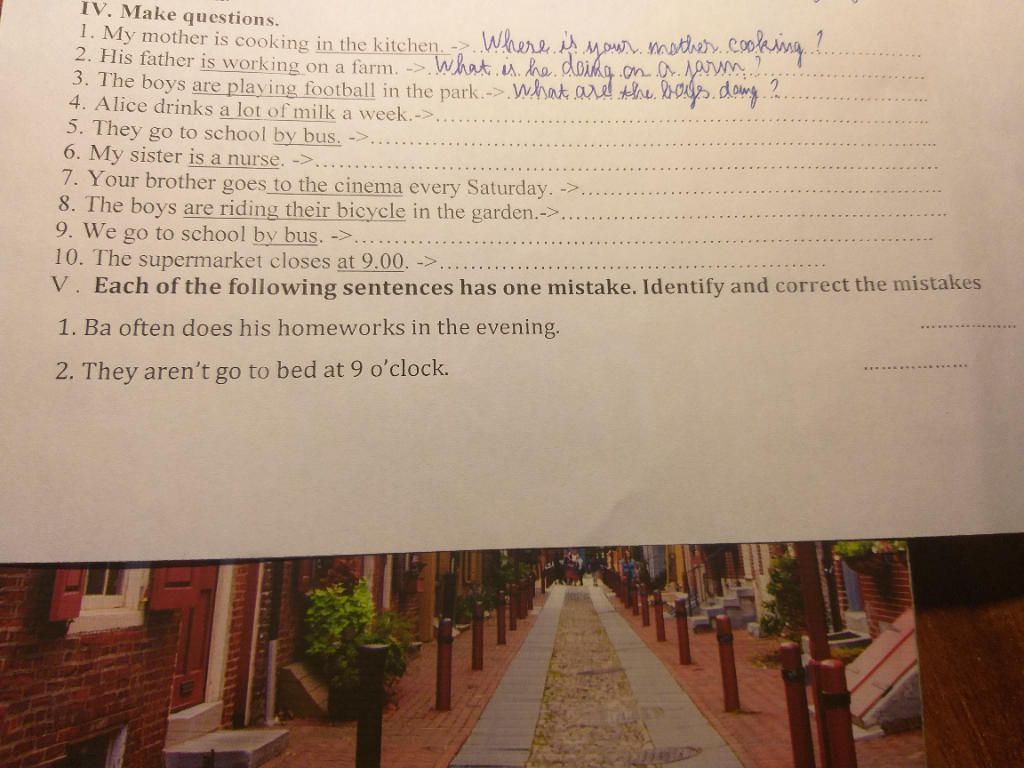 IV. Make questions.
1. My mother is cooking in the kitchen. -> Where is your mother cooking ?
2. His father is working on a farm. -> What is he doing on a farm ?
3. The boys are playing football in the park.-> What are the boys doing ?
4. Alice drinks a lot of milk a week.->
5. They go to school by bus. ->
6. My sister is a nurse. ->
7. Your brother goes to the cinema every Saturday. ->
8. The boys are riding their bicycle in the garden.->
9. We go to school by bus. ->
10. The supermarket closes at 9.00. ->
V . Each of the following sentences has one mistake. Identify and correct the mistakes
1. Ba often does his homeworks in the evening.
2. They aren't go to bed at 9 o'clock.